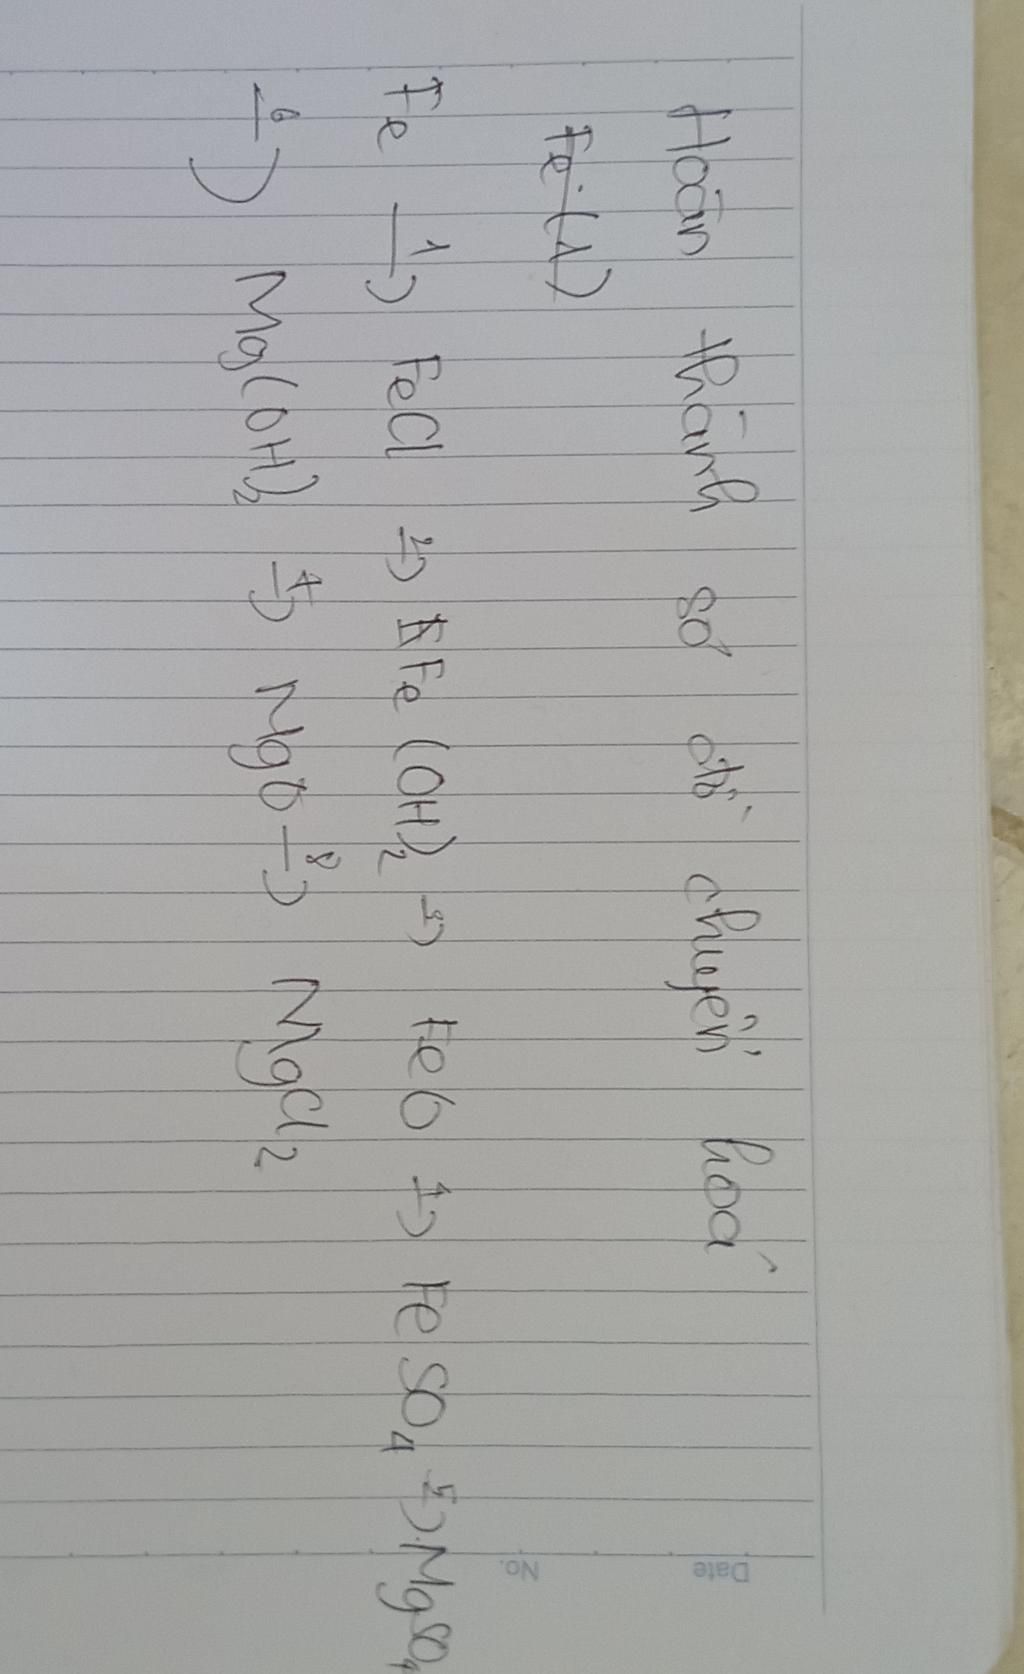 Date
No.
Hoàn thành sơ đồ chuyển hoá
Fe (1)
Fe 1→ FeCl 2→ Fe (OH)2 3→ FeO 4→ FeSO4 5→ MgSO4
6→ Mg(OH)2 7→ MgO 8→ MgCl2